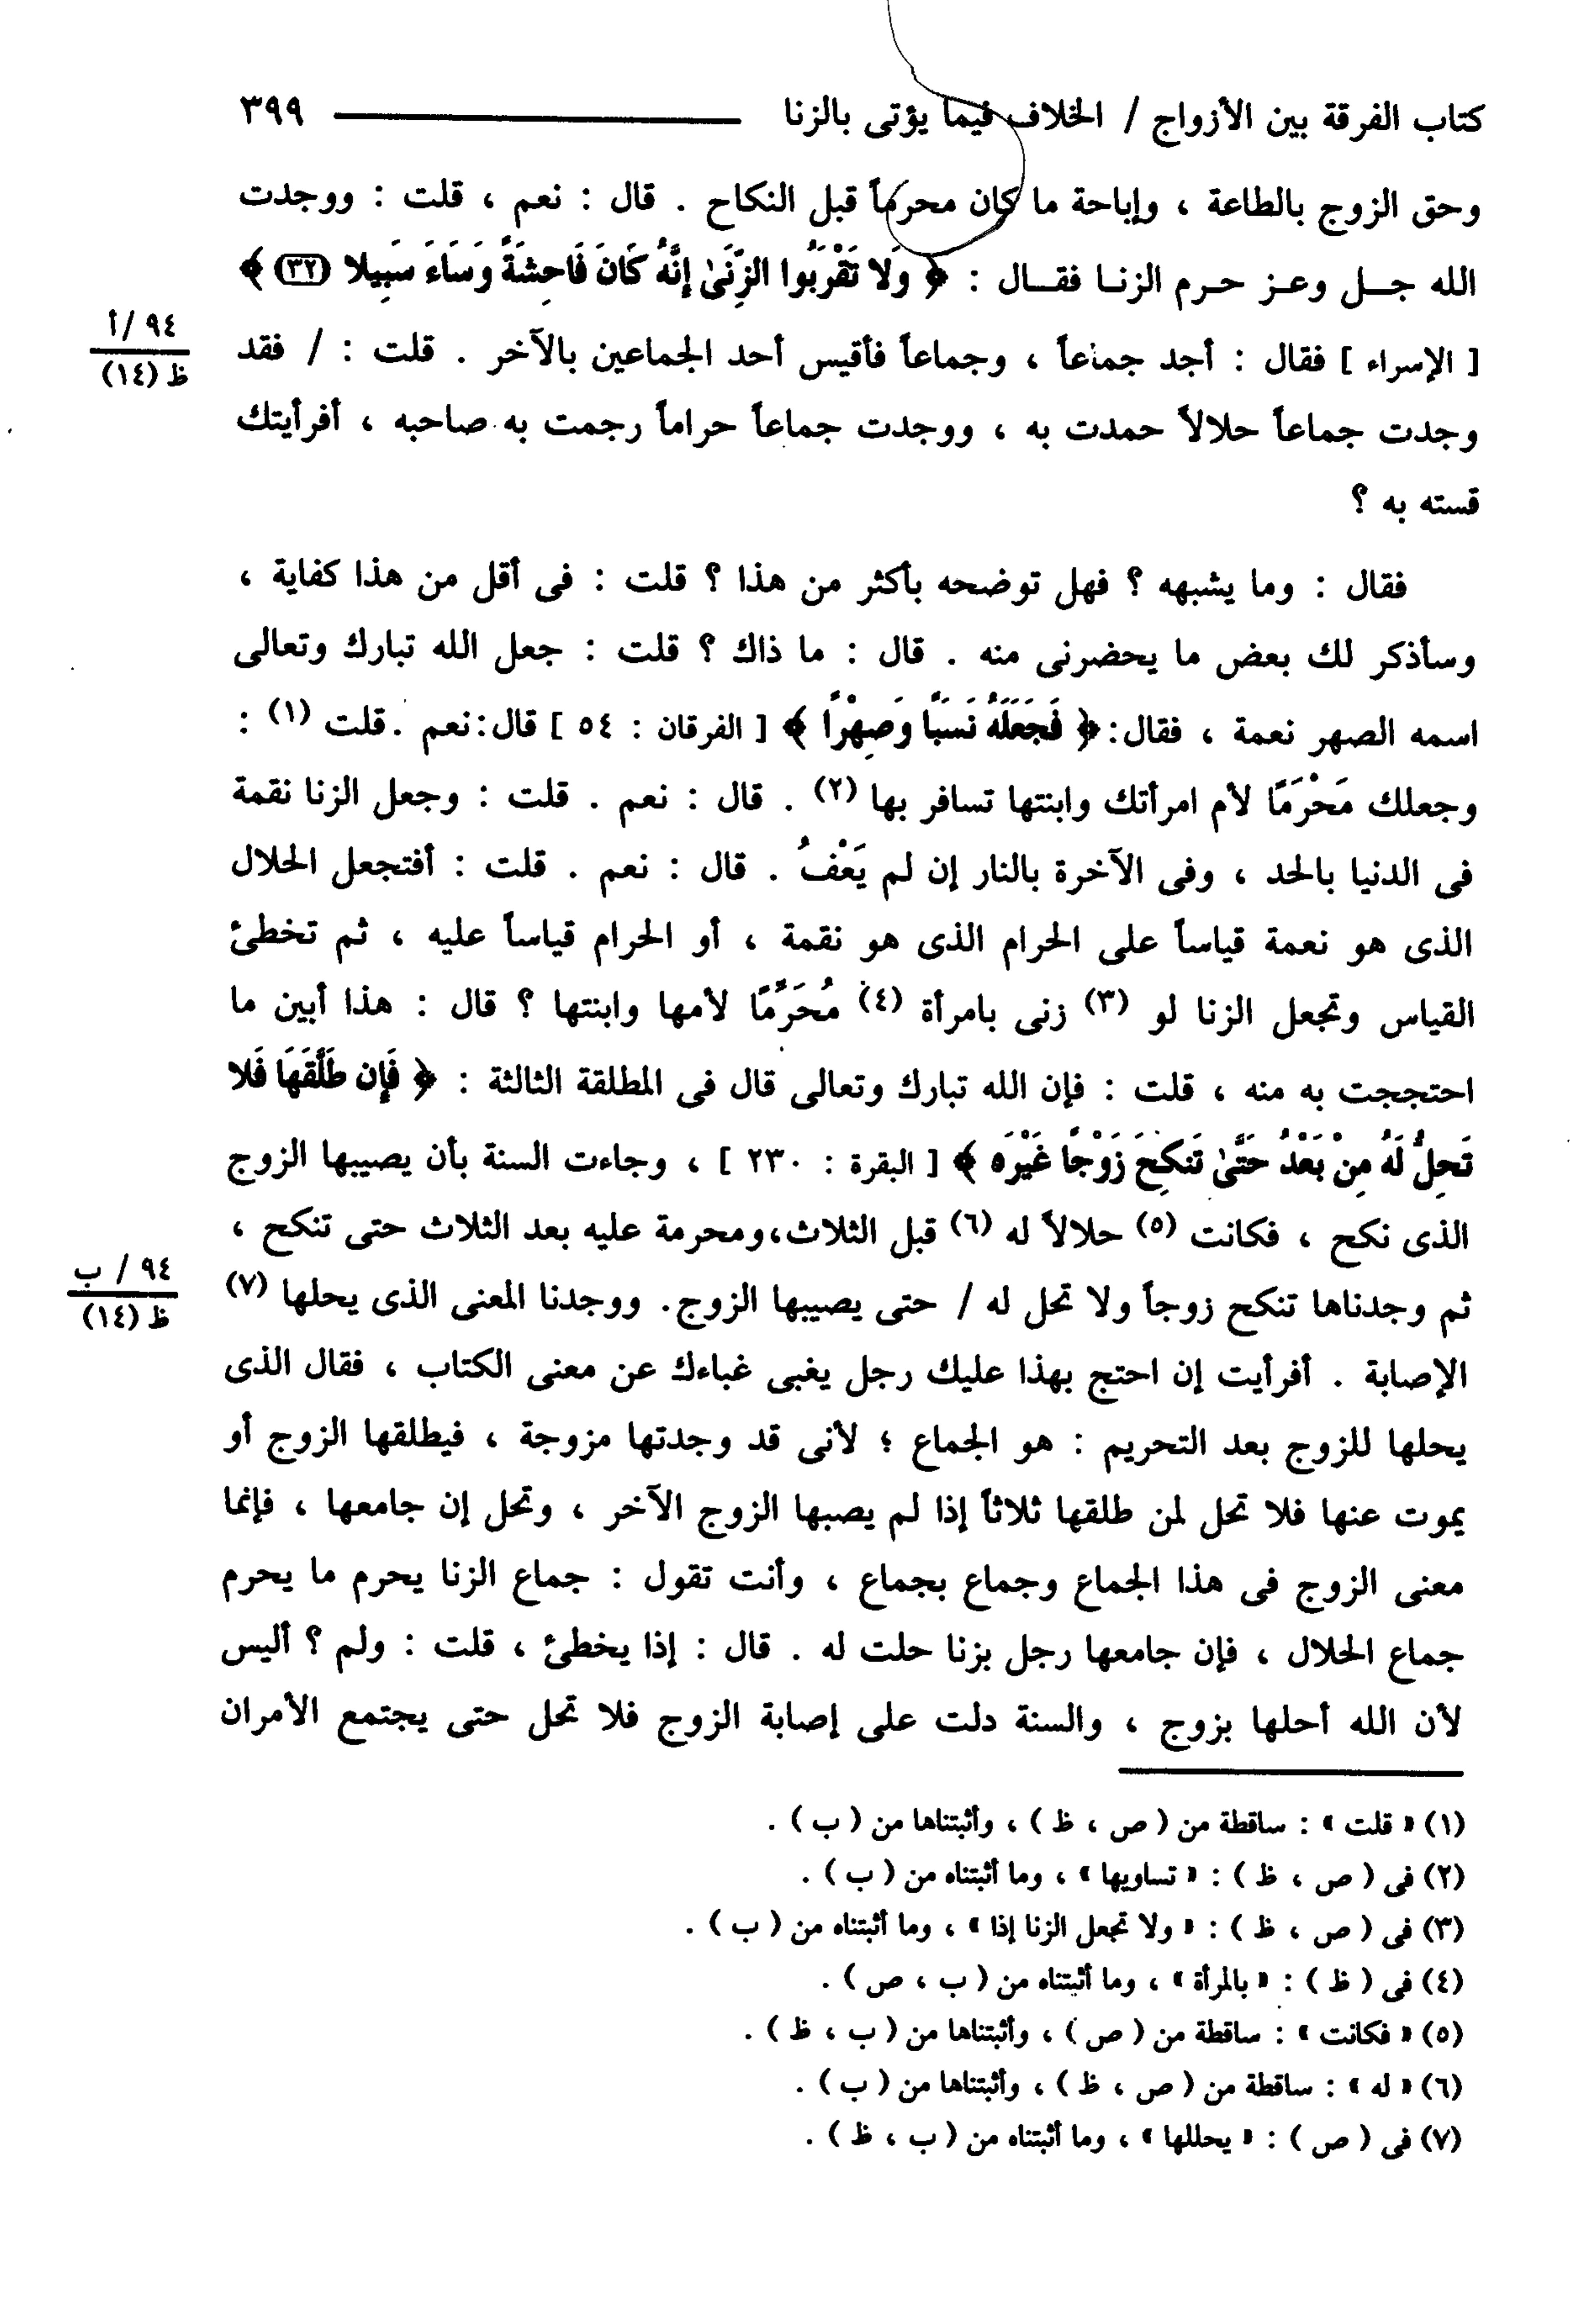 كتاب الفرقة بين الأزواج / الخلاف فيما يؤتى بالزنا ٣٩٩
وحق الزوج بالطاعة ، وإباحة ما كان محرماً قبل النكاح . قال : نعم ، قلت : ووجدت
الله جــل وعـز حـرم الزنـا فقــال : ﴿ وَلا تَقْرَبُوا الزِّنَىٰ إِنَّهُ كَانَ فَاحِشَةً وَسَاءَ سَبِيلا (٣٢) ﴾
[ الإسراء ] فقال : أجد جماعاً ، وجماعاً فأقيس أحد الجماعين بالآخر . قلت : / فقد
٩٤ /أ
ظ (١٤)
وجدت جماعاً حلالاً حمدت به ، ووجدت جماعاً حراماً رجمت به صاحبه ، أفرأيتك
قسته به ؟
فقال : وما يشبهه ؟ فهل توضحه بأكثر من هذا ؟ قلت : فى أقل من هذا كفاية ،
وسأذكر لك بعض ما يحضرنى منه . قال : ما ذاك ؟ قلت : جعل الله تبارك وتعالى
اسمه الصهر نعمة ، فقال: ﴿ فَجَعَلَهُ نَسَبًا وَصِهْرًا ﴾ [ الفرقان : ٥٤ ] قال: نعم . قلت (١) :
وجعلك مَحْرَمًا لأم امرأتك وابنتها تسافر بها (٢) . قال : نعم . قلت : وجعل الزنا نقمة
فى الدنيا بالحد ، وفى الآخرة بالنار إن لم يَعْفُ . قال : نعم . قلت : أفتجعل الحلال
الذى هو نعمة قياساً على الحرام الذى هو نقمة ، أو الحرام قياساً عليه ، ثم تخطئ
القياس وتجعل الزنا لو (٣) زنى بامرأة (٤) مُحَرِّمًا لأمها وابنتها ؟ قال : هذا أبين ما
احتججت به منه ، قلت : فإن الله تبارك وتعالى قال فى المطلقة الثالثة : ﴿ فَإِن طَلَّقَهَا فَلا
تَحِلُّ لَهُ مِنْ بَعْدُ حَتَّىٰ تَنكِحَ زَوْجًا غَيْرَه ﴾ [ البقرة : ٢٣٠ ] ، وجاءت السنة بأن يصيبها الزوج
الذى نكح ، فكانت (٥) حلالاً له (٦) قبل الثلاث، ومحرمة عليه بعد الثلاث حتى تنكح ،
ثم وجدناها تنكح زوجاً ولا تحل له / حتى يصيبها الزوج. ووجدنا المعنى الذى يحلها (٧)
٩٤ / ب
ظ (١٤)
الإصابة . أفرأيت إن احتج بهذا عليك رجل يغبى غباءك عن معنى الكتاب ، فقال الذى
يحلها للزوج بعد التحريم : هو الجماع ؛ لأنى قد وجدتها مزوجة ، فيطلقها الزوج أو
يموت عنها فلا تحل لمن طلقها ثلاثاً إذا لم يصبها الزوج الآخر ، وتحل إن جامعها ، فإنما
معنى الزوج فى هذا الجماع وجماع بجماع ، وأنت تقول : جماع الزنا يحرم ما يحرم
جماع الحلال ، فإن جامعها رجل بزنا حلت له . قال : إذا يخطئ ، قلت : ولم ؟ أليس
لأن الله أحلها بزوج ، والسنة دلت على إصابة الزوج فلا تحل حتى يجتمع الأمران
(١) « قلت » : ساقطة من ( ص ، ظ ) ، وأثبتناها من ( ب ) .
(٢) فى ( ص ، ظ ) : « تساويها » ، وما أثبتناه من ( ب ) .
(٣) فى ( ص ، ظ ) : « ولا تجعل الزنا إذا » ، وما أثبتناه من ( ب ) .
(٤) فى ( ظ ) : « بالمرأة » ، وما أثبتناه من ( ب ، ص ) .
(٥) « فكانت » : ساقطة من ( ص ) ، وأثبتناها من ( ب ، ظ ) .
(٦) « له » : ساقطة من ( ص ، ظ ) ، وأثبتناها من ( ب ) .
(٧) فى ( ص ) : « يحللها » ، وما أثبتناه من ( ب ، ظ ) .